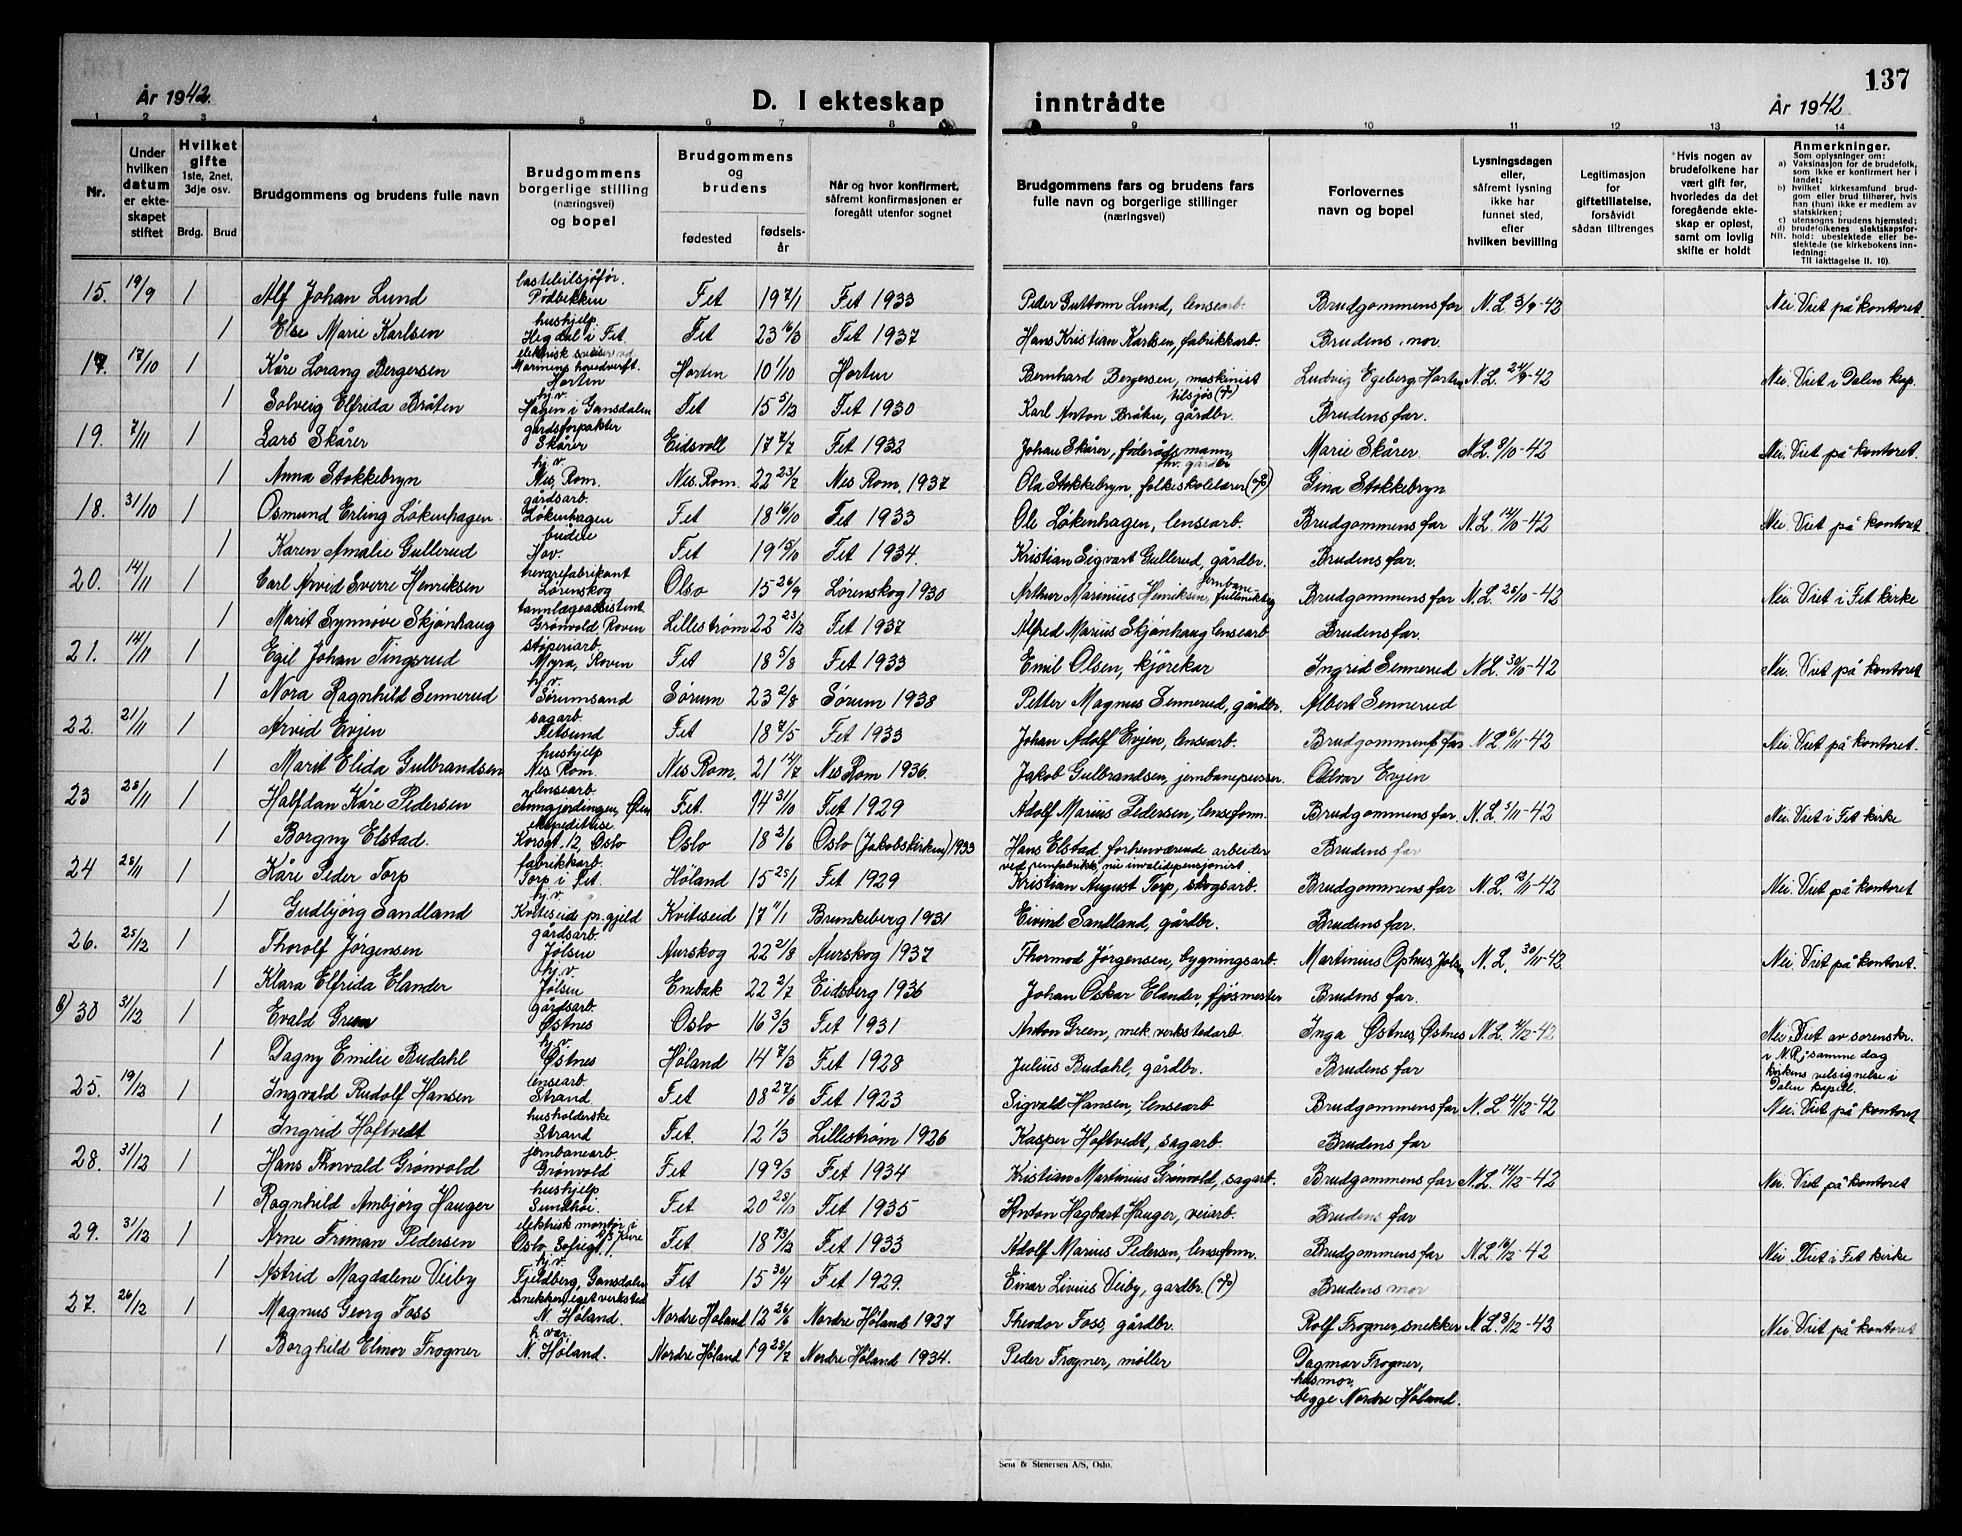 137
År 1942.
D. I ekteskap inntrådte
År 1942
1 2 3 4 5 6 7 8 9 10 11 12 13 14
Nr.
Under hvilken datum er ekteskapet stiftet
Hvilket gifte 1ste, 2net, 3dje osv.
Brdg. Brud
Brudgommens og brudens fulle navn
Brudgommens borgerlige stilling (næringsvei) og bopel
Brudgommens og brudens
fødested fødselsår
Når og hvor konfirmert, såfremt konfirmasjonen er foregått utenfor sognet
Brudgommens fars og brudens fars fulle navn og borgerlige stillinger (næringsvei)
Forlovernes navn og bopel
Lysningsdagen eller, såfremt lysning ikke har funnet sted, efter hvilken bevilling
Legitimasjon for giftetillatelse, forsåvidt sådan tiltrenges
*Hvis nogen av brudefolkene har vært gift før, hvorledes da det foregående ekteskap er opløst, samt om lovlig skifte er holdt
Anmerkninger.
Som oplysninger om:
a) Vaksinasjon for de brudefolk, som ikke er konfirmert her i landet;
b) hvilket kirkesamfund brudgom eller brud tilhører, hvis han (hun) ikke er medlem av statskirken;
c) utensogns brudens hjemsted;
d) brudefolkenes slektskapsforhold: ubeslektede eller beslektede (se kirkebokens innledning:
NB.
Til iakttagelse II. 10).
15. 19/9 1 Alf Johan Lund lastebilsjåfør. Rødbekken Fet 19 7/1 Fet 1933 Peder Guttorm Lund, lensearb. Brudgommens far N.L. 3/9-42 Nei. Viet på kontoret.
1 Else Marie Karlsen hushjelp Høgdal i Fet. Fet 23 16/3 Fet 1937 Hans Kristian Karlsen, fabrikkarb. Brudens mor.
17. 17/10 1 Kåre Lorang Bergersen elektrisk sveiser ved Marinens hovedverft. Horten Horten 10 1/10 Horten Bernhard Bergersen, maskinist tilsjøs (†) Ludvig Egeberg, Horten N.L. 24/9-42 Nei. Viet i Dalen kap.
1 Solveig Elfrida Bråten hj.v. Hagen i Gansdalen Fet 15 5/12 Fet 1930 Karl Anton Bråten, gårdbr. Brudens far.
19. 7/11 1 Lars Skårer gårdsforpakter Skårer Eidsvoll 17 7/7 Fet 1932 Johan Skårer, føderådsmann, fhv. gårdbr Marie Skårer N.L. 8/10-42 Nei. Viet på kontoret.
1 Anna Stokkebryn hj.v. Nes, Rom. Nes. Rom. 22 23/7 Nes Rom, 1937 Ola Stokkebryn, folkeskolelærer (†) Gina Stokkebryn
18. 31/10 1 Osmund Erling Løkenhagen gårdsarb. Løkenhagen Fet 18 16/10 Fet 1933 Ole Løkenhagen, lensearb. Brudgommens far N.L. 12/10-42 Nei. Viet på kontoret
1 Karen Amalie Gullerud budeie Hov. Fet 19 15/10 Fet 1934. Kristian Sigvart Gullerud, gårdbr. Brudens far.
20. 14/11 1 Carl Arvid Sverre Henriksen trevarefabrikant Lørenskog Oslo 15 26/9 Lørenskog 1930 Arthur Marinius Henriksen, jernbanefullmektig Brudgommens far N.L. 28/10-42 Nei. Viet i Fet kirke
1 Marit Synnøve Skjønhaug tannlægeassistent Grønvold, Roven Lillestrøm 22 23/12 Fet 1937 Alfred Marius Skjønhaug lensearb Brudens far.
21. 14/11 1 Egil Johan Tingsrud støperiarb. Myra, Roven Fet 18 5/8 Fet 1933 Emil Olsen, kjørekar Ingrid Sennerud N.L. 30/10-42 Nei. Viet på kontoret
1 Nora Ragnhild Sennerud hj.v. Sørumsand Sørum 23 2/8 Sørum 1938 Petter Magnus Sennerud, gårdbr. Albert Sennerud
22. 21/11 1 Arvid Evjen sagarb. Fetsund Fet 18 7/5 Fet 1933 Johan Adolf Evjen, lensearb. Brudgommens far N.L. 6/11-42 Nei. Viet på kontoret.
1 Marit Elida Gulbrandsen hushjelp Nes Rom. Nes Rom. 21 14/7 Nes Rom 1936. Jakob Gulbrandsen, jernbanepusser. Odvar Evjen
23 28/11 1 Halfdan Kåre Pedersen lensearb. Fet. 14 31/10 Fet 1929 Adolf Marius Pedersen, lseform. Brudgommens far. N.L. 5/11-42 Nei. Viet i Fet kirke
1 Borgny Elstad. ekspeditrise. Korsgt. 12, Oslo Oslo 18 3/6 Oslo (Jakobskirken) 1933 Hans Elstad, forhenværende arbeider ved remfabrikk, nu invalidepensjonist Brudens far
24 28/11 1 Kåre Peder Torp fabrikkarb. Torp i Fet. Høland 15 25/1 Fet 1929 Kristian August Torp, skogsarb. Brudgommens far N.L. 13/11-42 Nei. Viet på kontoret
1 Gudbjørg Sandland hj.v. Kviteseid pr.gjeld Kviteseid 17 11/1 Brunkeberg 1931 Eivind Sandland, gårdbr. Brudens far.
26. 25/12 1 Thorolf Jørgensen gårdsarb. Jølsen Aurskog 22 2/8 Aurskog 1937 Thormod Jørgensen, bygningsarb. Martinius Ophus, Jølsen N.L. 30/11-42 Nei. Viet på kontoret.
1 Klara Elfrida Elander hj.v. Jølsen Enebak 22 2/7 Eidsberg 1936 Johan Oskar Elander, fjøsmester Brudens far.
b) 30 31/12 1 Evald Green gårdsarb. Østnes Oslo 16 3/3 Fet 1931 Anton Green, mek. verkstedarb. Inga Østnes, Østnes N.L. 4/12-42 Nei. Viet av sorenskr. i N.R., samme dag kirkens velsignelse i Dalen kapell.
1 Dagny Emilie Budahl hj.v. Østnes Høland 14 7/3 Fet 1928 Julius Budahl, gårdbr. Brudens far
25. 19/12 1 Ingvald Rudolf Hansen lensearb. Strand Fet 08 27/6 Fet 1923 Sigvald Hansen, lensearb Brudgommens far N.L. 4/12-42 Nei. Viet på kontoret
1 Ingrid Hoftvedt husholderske Strand Fet. 12 1/3 Lillestrøm 1926 Kasper Hoftvedt, sagarb. Brudens far
28. 31/12 1 Hans Thorvald Grønvold jernbanearb. Grønvold Fet 19 9/3 Fet 1934 Kristian Martinius Grønvold, sagarb. Brudgommens far N.L. 14/12-42 Nei. Viet på kontoret
1 Ragnhild Ambjørg Hauger hushjelp Sundhøi Fet 20 28/10 Fet 1935 Anton Hagbart Hauger, veiarb. Brudens far
29. 31/12 1 Arne Friman Pedersen elektrisk montør i A/S Pure Oslo, Sofiegt. 1. Fet 18 23/12 Fet 1933 Adolf Marius Pedersen, lenseform. Brudgommens far N.L. 16/12-42 Nei. Viet i Fet kirke
1 Astrid Magdalene Veiby hj.v. Fjeldberg, Gansdalen Fet 15 30/4 Fet 1929. Einar Livius Veiby, gardbr. (†) Brudens mor
27. 26/12 1 Magnus Georg Foss snekker, eget verksted N. Høland. Nordre Høland 12 26/6 Nordre Høland 1927 Theodor Foss, gårdbr. Rolf Frogner, snekker N.L. 3/12-42 Nei. Viet på kontoret
1 Borghild Elinor Frogner h.vær. N. Høland. Nordre Høland 19 23/7 Nordre Høland 1934. Peder Frogner, møller Dagmar Frogner, husmor, begge Nordre Høland.
Sem & Stenersen A/S, Oslo.